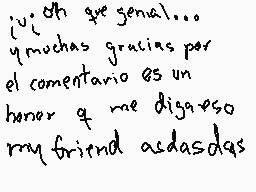 ¡u¡ oh que genial...
y muchas gracias por
el comentario es un
honor q me digas eso
my friend asdasdas